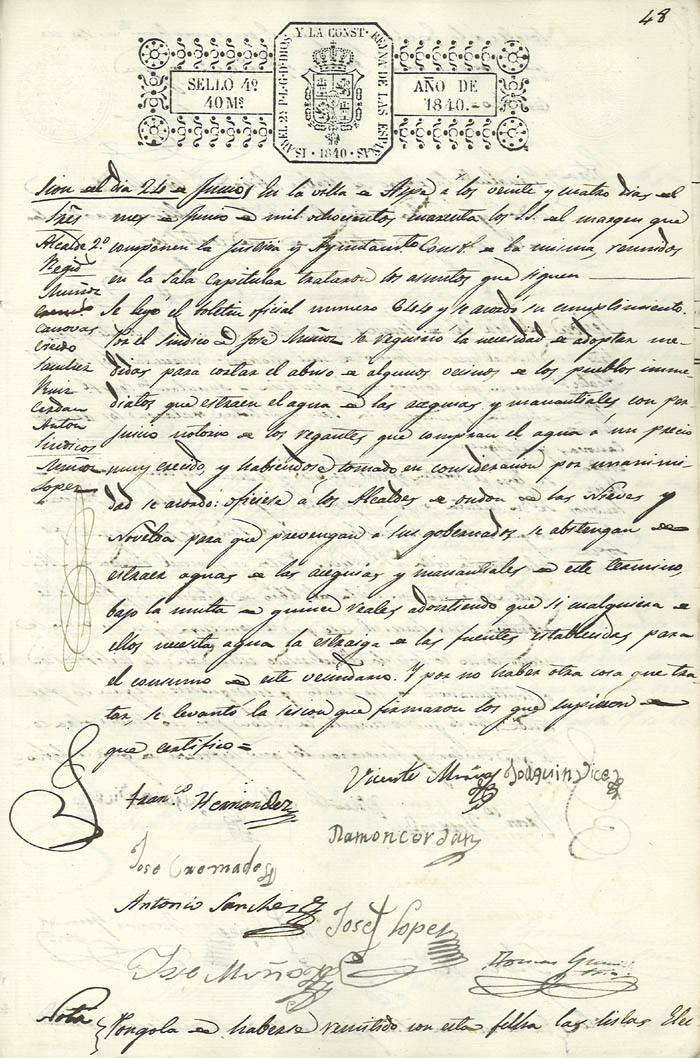 48
ISABEL 2ª P.L.G.D.DIOS Y LA CONST. REJNA DE LAS ESPAÑAS · 1840 ·
SELLO 4º
40 Mˢ
AÑO DE
1840.
Sion del dia 24 de Junio
En la villa de Aspe á los veinte y cuatro dias del
mes de Junio de mil ochocientos cuarenta los SS. del margen que
componen la Justicia y Ayuntamto. Constl. de la misma, reunidos
en la Sala Capitular trataron los asuntos que siguen
Se leyó el boletin oficial numero 644 y se acordó su cumplimiento.
Por el sindico D. Jose Muñoz se requirió la necesidad de adoptar me-
didas para cortar el abuso de algunos vecinos de los pueblos inme
diatos que estraen el agua de las acequias y manantiales con per
juicio notorio de los regantes que compran el agua a un precio
muy crecido, y habiendose tomado en consideracion por unanimi
dad se acordó: oficiese á los Alcaldes de ondon de las Nieves y
Novelda para que prevengan á sus gobernados se abstengan de
estraer aguas de las acequias y manantiales de este termino,
bajo la multa de quince reales advirtiendo que si cualquiera de
ellos necesita agua la estraiga de las fuentes establecidas para
el consumo de este vecindario. Y por no haber otra cosa que tra
tar, se levantó la sesion que firmaron los que supieron de
que certifico =
Sres
Alcalde 2º
Regid
Muñoz
Canovas
Cerdo
Sanchez
Ruiz
Cerdan
Anton
Sindicos
Muñoz
Lopez
Vicente Muñoz
Joaquin Vicez
Franco. Hernandez
Ramon cerdan
Jose Cremades
Antonio Sanchez
Jose Lopez
Jose Muñoz
Nota
Pongola de haberse remitido con esta fecha las listas Elec